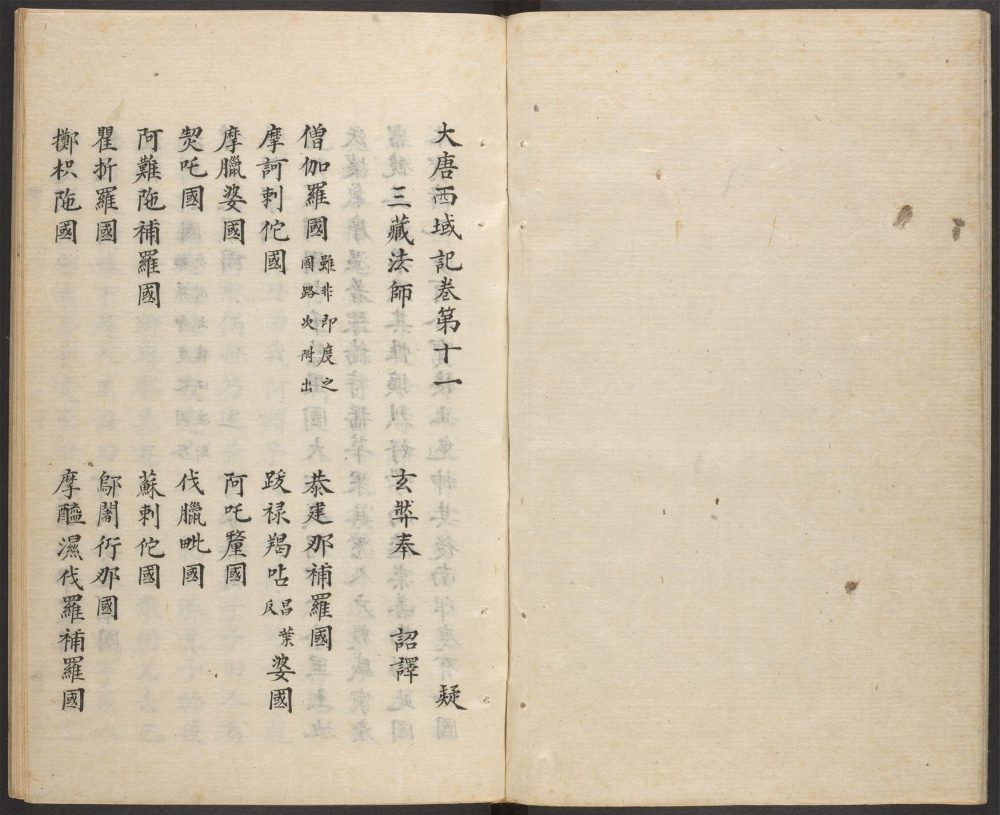 大唐西域記卷第十一 疑
三藏法師 玄奘奉 詔譯
僧伽羅國 雖非即度之國路次附出 恭建那補羅國
摩訶剌佗國 跋禄羯呫 昌葉反 婆國
摩臘婆國 阿吒釐國
契吒國 伐臘毗國
阿難陁補羅國 蘇剌佗國
瞿折羅國 鄔闍衍那國
擲枳陁國 摩醯濕伐羅補羅國